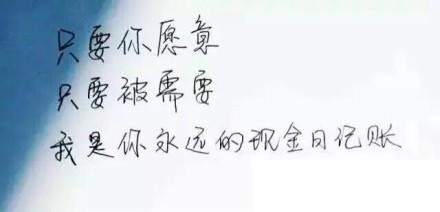 只要你愿意
只要被需要
我是你永远的现金日记账